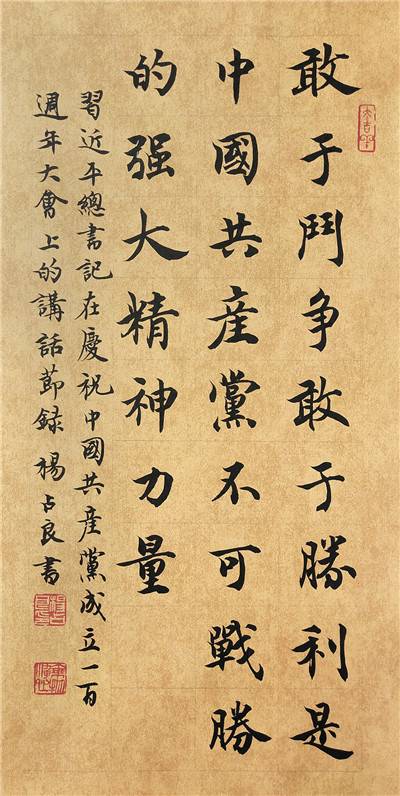 敢于鬥争敢于勝利是
中國共産黨不可戰勝
的强大精神力量
習近平總書記在慶祝中國共産黨成立一百
週年大會上的講話節録 楊占良書